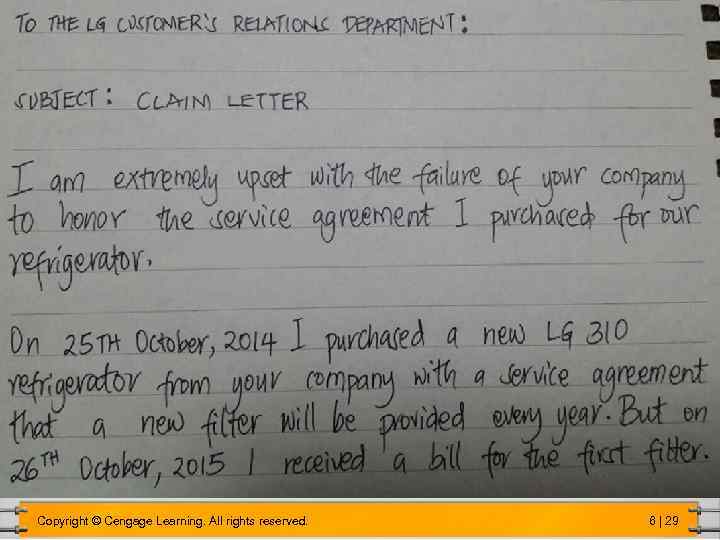 TO THE LG CUSTOMER'S RELATIONS DEPARTMENT:
SUBJECT: CLAIM LETTER
I am extremely upset with the failure of your company
to honor the service agreement I purchased for our
refrigerator.
On 25TH October, 2014 I purchased a new LG 310
refrigerator from your company with a service agreement
that a new filter will be provided every year. But on
26TH October, 2015 I received a bill for the first filter.
Copyright © Cengage Learning. All rights reserved.
6 | 29